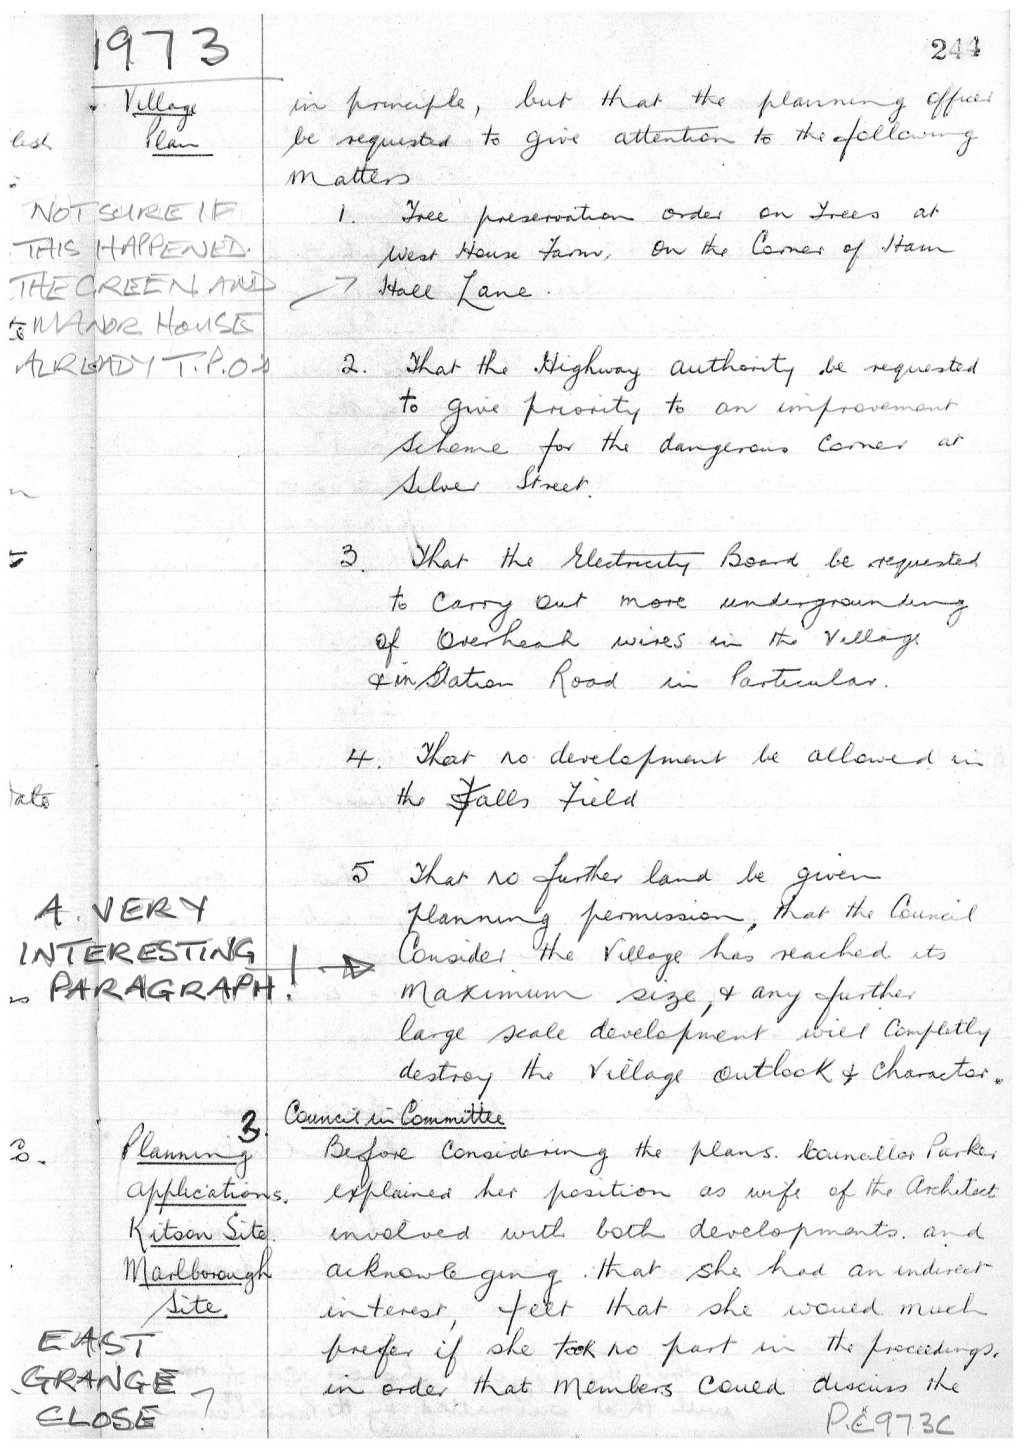 1973
244
Village
Plan
in principle, but that the planning officer
be requested to give attention to the following
matters
NOT SURE IF
THIS HAPPENED.
THE GREEN AND
MANOR HOUSE
ALREADY T.P.O's
1. Tree preservation order on Trees at
West House Farm, on the Corner of Ham
Hall Lane.
2. That the Highway Authority be requested
to give priority to an improvement
Scheme for the dangerous corner at
Silver Street.
3. That the Electricity Board be requested
to carry out more undergrounding
of Overhead wires in the Village
& in Station Road in Particular.
4. That no development be allowed in
the Falls Field
5 That no further land be given
planning permission, that the Council
Consider the Village has reached its
maximum size, & any further
large scale development will Completly
destroy the Village outlook & character.
A VERY
INTERESTING
PARAGRAPH!
3. Council in Committee
Planning
applications.
Kitson Site.
Marlborough
Site.
Before considering the plans. Councillor Parker
explained her position as wife of the Architect
involved with both developments. and
acknowleging that she had an indirect
interest, felt that she would much
prefer if she took no part in the proceedings.
in order that Members could discuss the
EAST
GRANGE
CLOSE ?
P.C973C